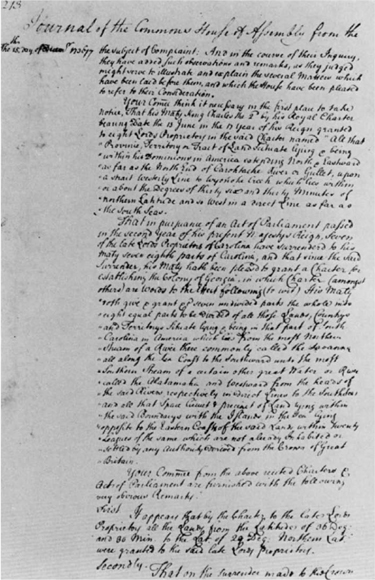 213
Journal of the Commons House of Assembly from the
the 15. day of 1736/7
the subject of Complaint. And in the course of their Inquiry,
they have added such observations and remarks, as they judged
might serve to illustrate and explain the several Matters which
have been laid before them, and which the House have been pleased
to refer to their Consideration.
Your Comee think it necessary in the first place to take
notice, That his Maty King Charles the 2d by his Royal Charter
bearing Date the 13 June in the 17 year of his Reign granted
to eight Lords Proprietors in the said Charter named "All that
Province, Territory or Tract of Land Situate lying & being
within his Dominions in America extending North & Eastward
as far as the North End of Carahtucke River or Gullet, upon
a strait Westerly Line to Creek which lies within
or about the Degrees of thirty six and thirty Minutes of
northern Latitude and so West in a direct Line as far as
the South Seas.
That in pursuance of an Act of Parliament passed
in the second Year of his present Majestys Reign, Seven
of the late Lords Proprietors of Carolina have surrendered to his
maty seven eighth parts of Carolina, and that since the said
Surrender, his Maty hath been pleased to grant a Charter for
establishing the Colony of Georgia, in which Charter (amongst
others) are Words to the Effect following (to wit) His Maty
doth give & grant seven undivided parts the whole into
eight equal parts to be divided of all those Lands, Countrys
and Territorys Situate lying & being in that part of South
Carolina in America which lies from the most Northern
Stream of a River there commonly called the Savanna
all along the Sea Coast to the Southward unto the most
Southern Stream of a certain other great Water or River
called the Alatamaha and Westward from the heads of
the said Rivers respectively in direct Lines to the South Seas
and all that Space Circuit & Precinct of Land lying within
the said Boundarys with the Islands in the Sea lying
opposite to the Eastern Coast of the said Lands within Twenty
Leagues of the same which are not already Inhabited or
settled by any Authority derived from the Crown of Great
Britain.
Your Commee from the above recited Charters &
Act of Parliament are furnished with the following
very obvious Remarks.
First. It appears that by the Charter to the Late Lords
Proprietors all the Lands from the Latitude of 36 Deg
and 30 Min. to the Lat of 29 Deg. Northern Lat
were granted to the said late Lords Proprietors.
Secondly. That on the Surrender made to his Crown